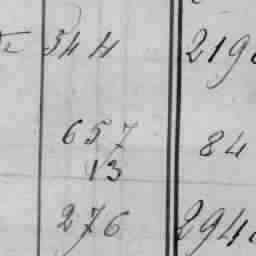 544 219
657 84
13
276 294